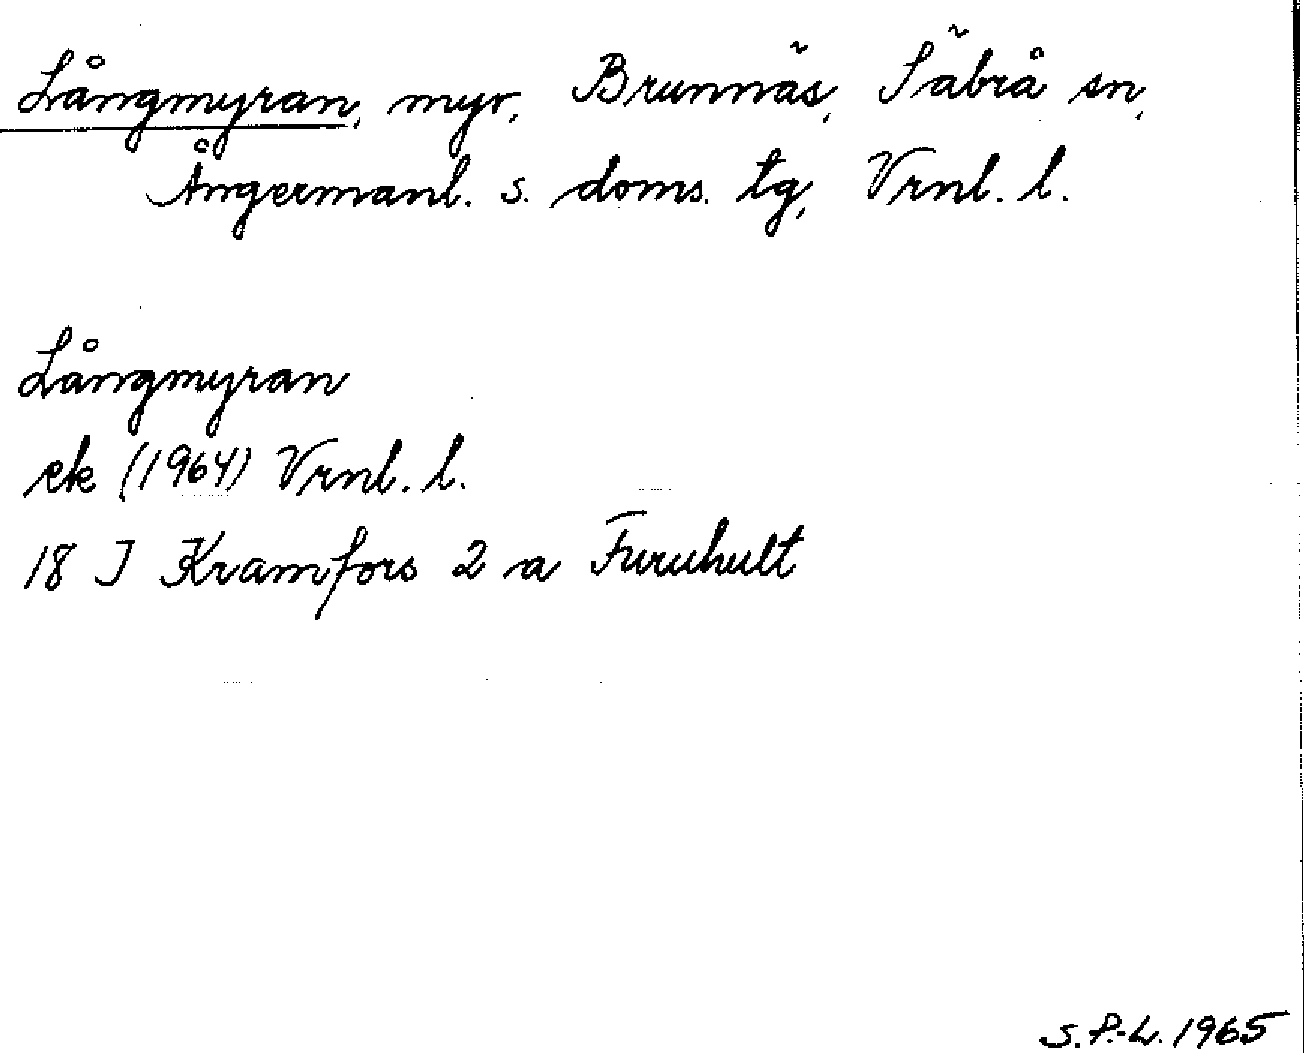 Långmyran, myr, Brunnäs, Säbrå sn,
Ångermanl. s. doms. tg, Vrnl. l.
Långmyran
ek (1964) Vrnl. l.
18 I Kramfors 2 a Furuhult
S. P.-L. 1965